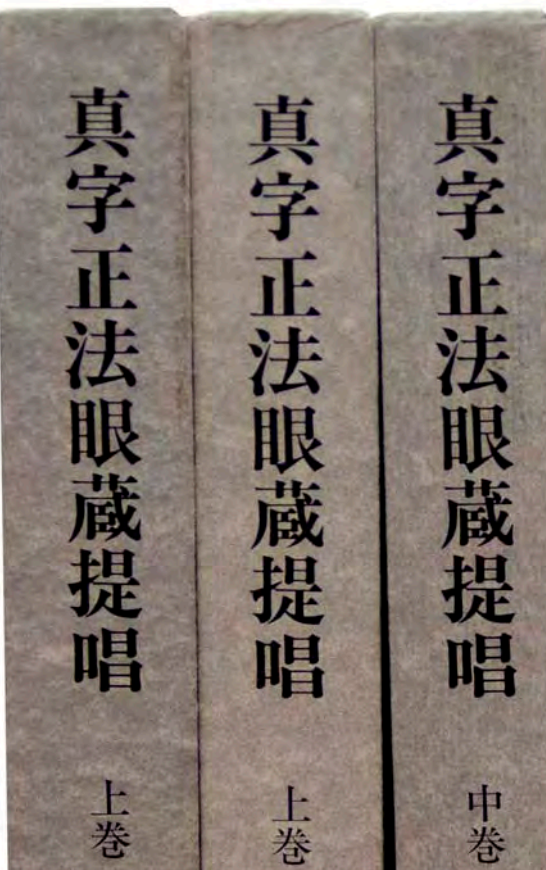 真字正法眼蔵提唱 上巻
真字正法眼蔵提唱 上巻
真字正法眼蔵提唱 中巻